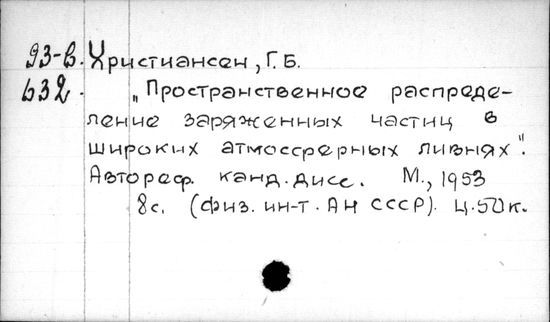 93-в. Христиансен, Г.Б.
632. „Пространственное распреде-
ление заряженных частиц в
широких атмосферных ливнях".
Автореф. канд. дисс. М., 1953
8с. (физ. ин-т. АН СССР). ц. 50 к.